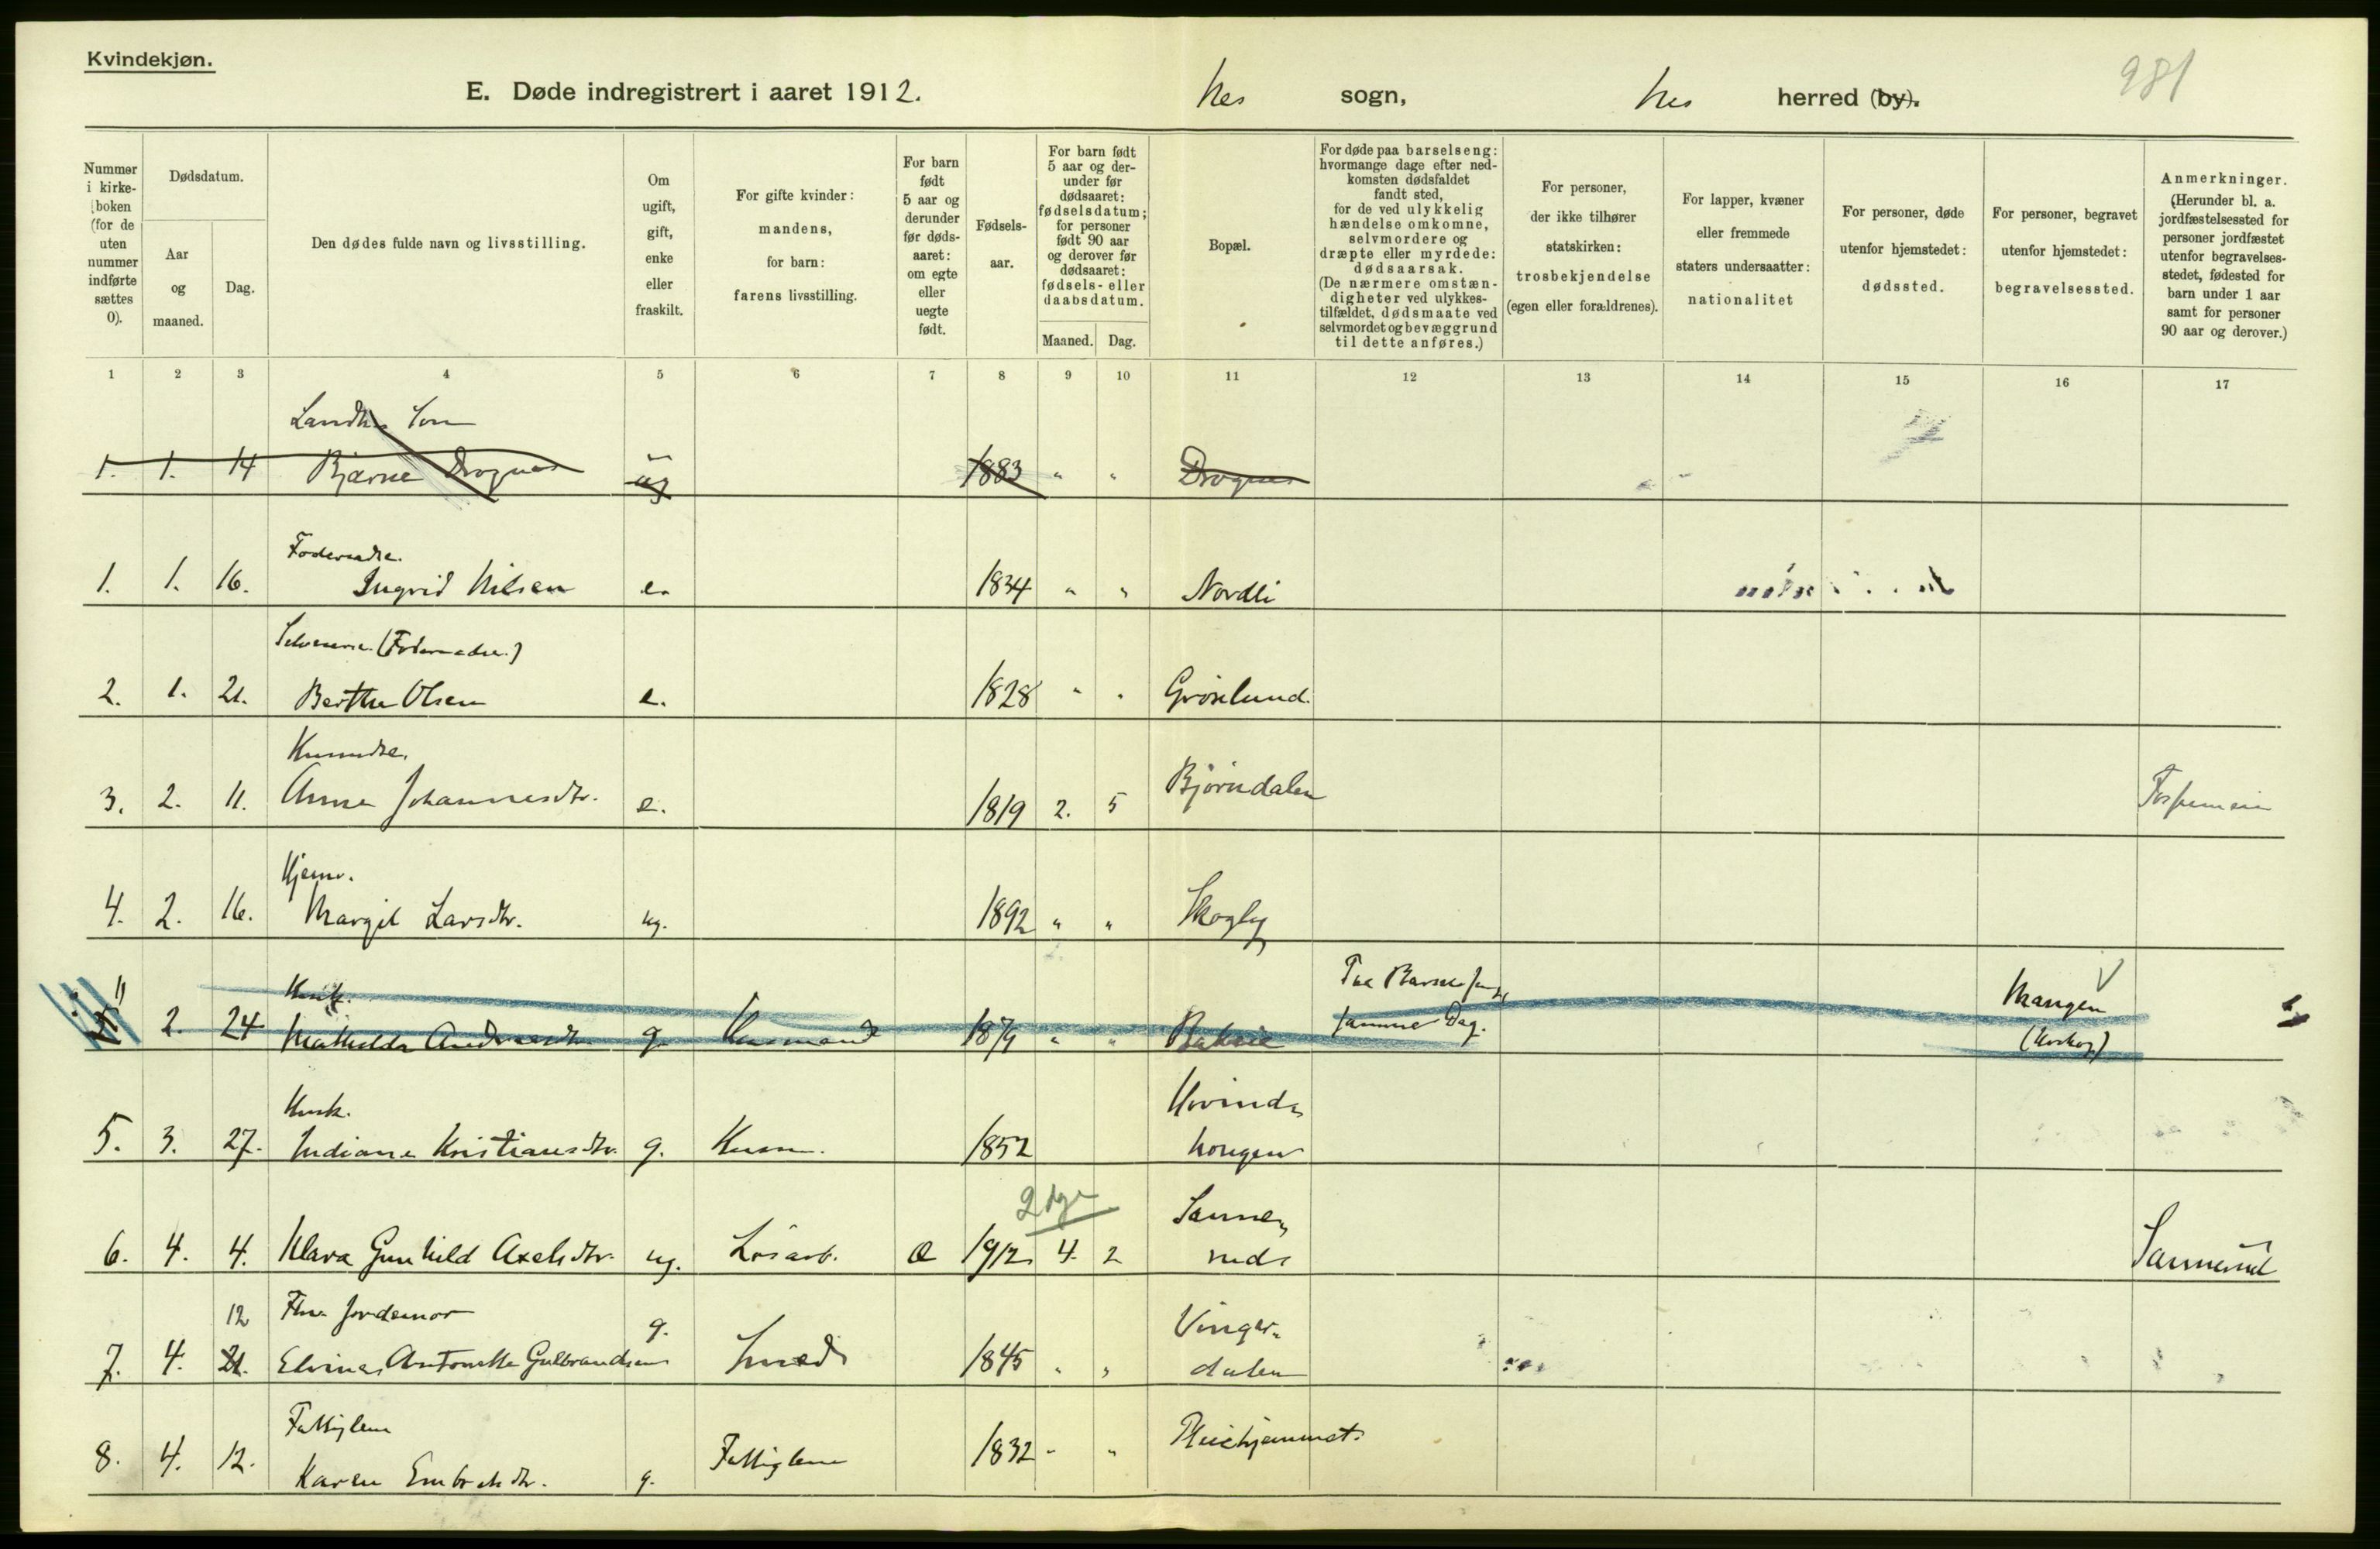 Kvindekjøn.
E. Døde indregistrert i aaret 1912.
Nes sogn,
Nes herred (by).
981
Nummer i kirkeboken (for de uten nummer indførte sættes 0).
Dødsdatum.
Aar og maaned.
Dag.
Den dødes fulde navn og livsstilling.
Om ugift, gift, enke eller fraskilt.
For gifte kvinder: mandens, for barn: farens livsstilling.
For barn født 5 aar og derunder før dødsaaret: om egte eller uegte født.
Fødselsaar.
For barn født 5 aar og derunder før dødsaaret: fødselsdatum; for personer født 90 aar og derover før dødsaaret: fødsels- eller daabsdatum.
Maaned.
Dag.
Bopæl.
For døde paa barselseng: hvormange dage efter nedkomsten dødsfaldet fandt sted, for de ved ulykkelig hændelse omkomne, selvmordere og dræpte eller myrdede: dødsaarsak. (De nærmere omstændigheter ved ulykkestilfældet, dødsmaate ved selvmordet og bevæggrund til dette anføres.)
For personer, der ikke tilhører statskirken: trosbekjendelse (egen eller forældrenes).
For lapper, kvæner eller fremmede staters undersaatter: nationalitet
For personer, døde utenfor hjemstedet: dødssted.
For personer, begravet utenfor hjemstedet: begravelsessted.
Anmerkninger. (Herunder bl. a. jordfæstelsessted for personer jordfæstet utenfor begravelsesstedet, fødested for barn under 1 aar samt for personer 90 aar og derover.)
1 2 3 4 5 6 7 8 9 10 11 12 13 14 15 16 17
1. 1. 14 Bjarne Drognes ug 1883 " " Drognes
1. 1. 16. Ingrid Nilsen e. 1834 " " Nordli
2. 1. 21. Berthe Olsen e. 1828 " " Grønlund.
3. 2. 11. Anne Johannesdtr. e. 1819 2. 5 Bjørndalen
Hjemv.
4. 2. 16. Margit Larsdtr. ug. 1892 " " Skogly
Husk.
2. 24 Mathilde g. Husmand 1879 " "
samme Dag.
Mangen
Husk.
5. 3. 27. Indiane Kristiansdtr. g. Husm. 1852 Hvinds
haugen
2 dge
6. 4. 4. Klara Gunhild Axelsdtr. ug. Løsarb. e 1912 4. 2 Sanne
ruds
Sannerud
12 Fhv. jordemor
7. 4. 21. Elvine Antonette Gulbrandsen g. Smed 1845 " " Vinger-
dalen
Fattiglem
8. 4. 12. Karen Embretsdtr. g. Fattiglem 1832 " " Pleiehjemmet.